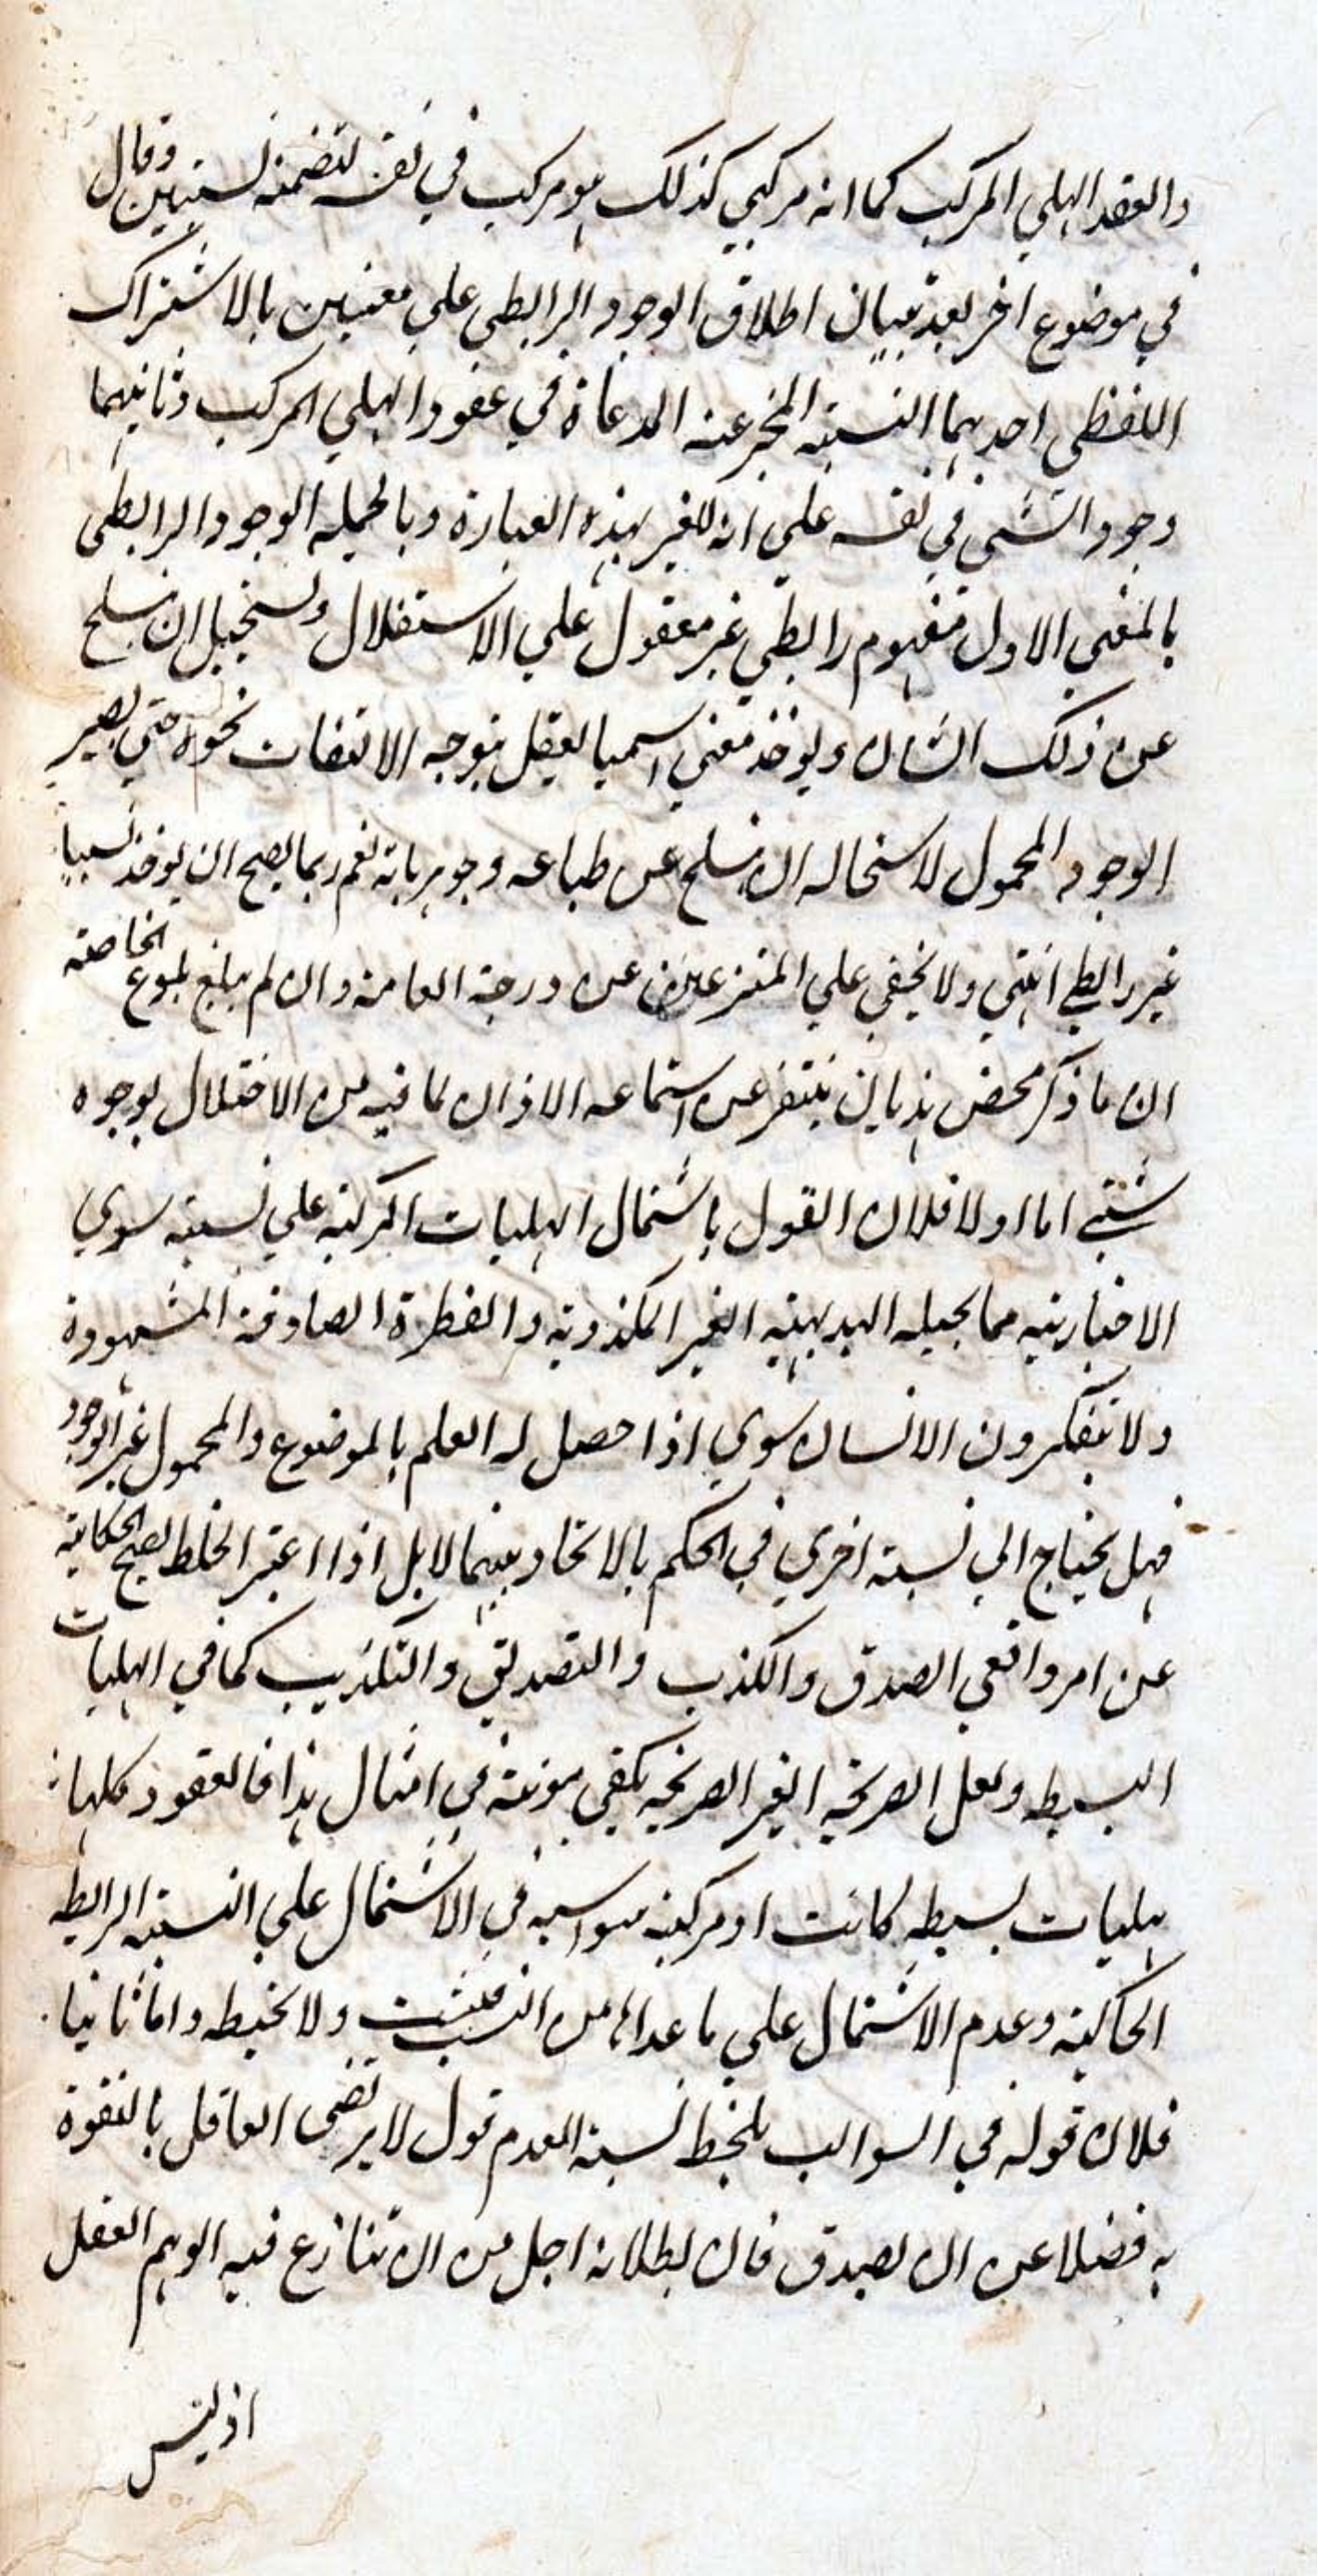 والعقد الهلي المركب كما انه مركبي كذلك هو مركب في نفسه لتضمنه نسبتين وقال
في موضوع اخر بعد تبيان اطلاق الوجود الرابطي علي معنيين بالاشتراك
اللفظي احدهما النسبته المخبر عنه المدعاة في عقود الهلي المركب وثانيهما
وجود الشي في نفسه علي انه للغير بهذه العبارة وبالجمله الوجود الرابطي
بالمعني الاول مفهوم رابطي غير معقول علي الاستقلال ويستحيل ان ينسلخ
عن ذلك الشان ويوخذ معني اسميا لعقل بتوجه الالتفات نحوه حتي يصير
الوجود المحمول لاستحاله ان ينسلخ عن طباعه وجوهرياته نعم ربما يصح ان يوخذ نسبيا
غير رابطي انتهي ولا يخفي علي المتنزعين عن درجة العامة وان لم يبلغ بلوغ الخاصته
ان ما ذكر محض هذيان يتنفر عن استماعه الاذان لما فيه من الاختلال بوجوه
شتي اما اولا فلان القول باشتمال الهليات المركبته علي نسبته سوي
الاخباريته مما يحيله البديهيته الغير المكذوبته والفطرة الصادقة المشهودة
ولا تتفكرون الانسان سوي اذا حصل له العلم بالموضوع والمحمول غير الوجود
فهل يحتاج الي نسبته اخري في الحكم بالاتحاد بينهما لا بل اذا اعتبر الخلط لصح الحكايته
عن امر واقعي الصدق والكذب والتصديق والتكذيب كما في الهليات
البسيطه ولعل الصريحيه الغير الصريحيه يكفي مونته في امثال هذا فالعقود كلها
هليات بسيطه كانت او مركبته سواسيه في الاشتمال علي النسبته الرابطه
الحاكيته وعدم الاشتمال علي ما عداها من النسب فتثبت ولا تخبط واما ثانيا
فلان قوله في السوالب يلحظ نسبته العدم قول لا يرتضي العاقل بالتفوة
به فضلا عن ان يصدق فان بطلانه اجل من ان تنازع فيه الوهم العقل
اذ ليس